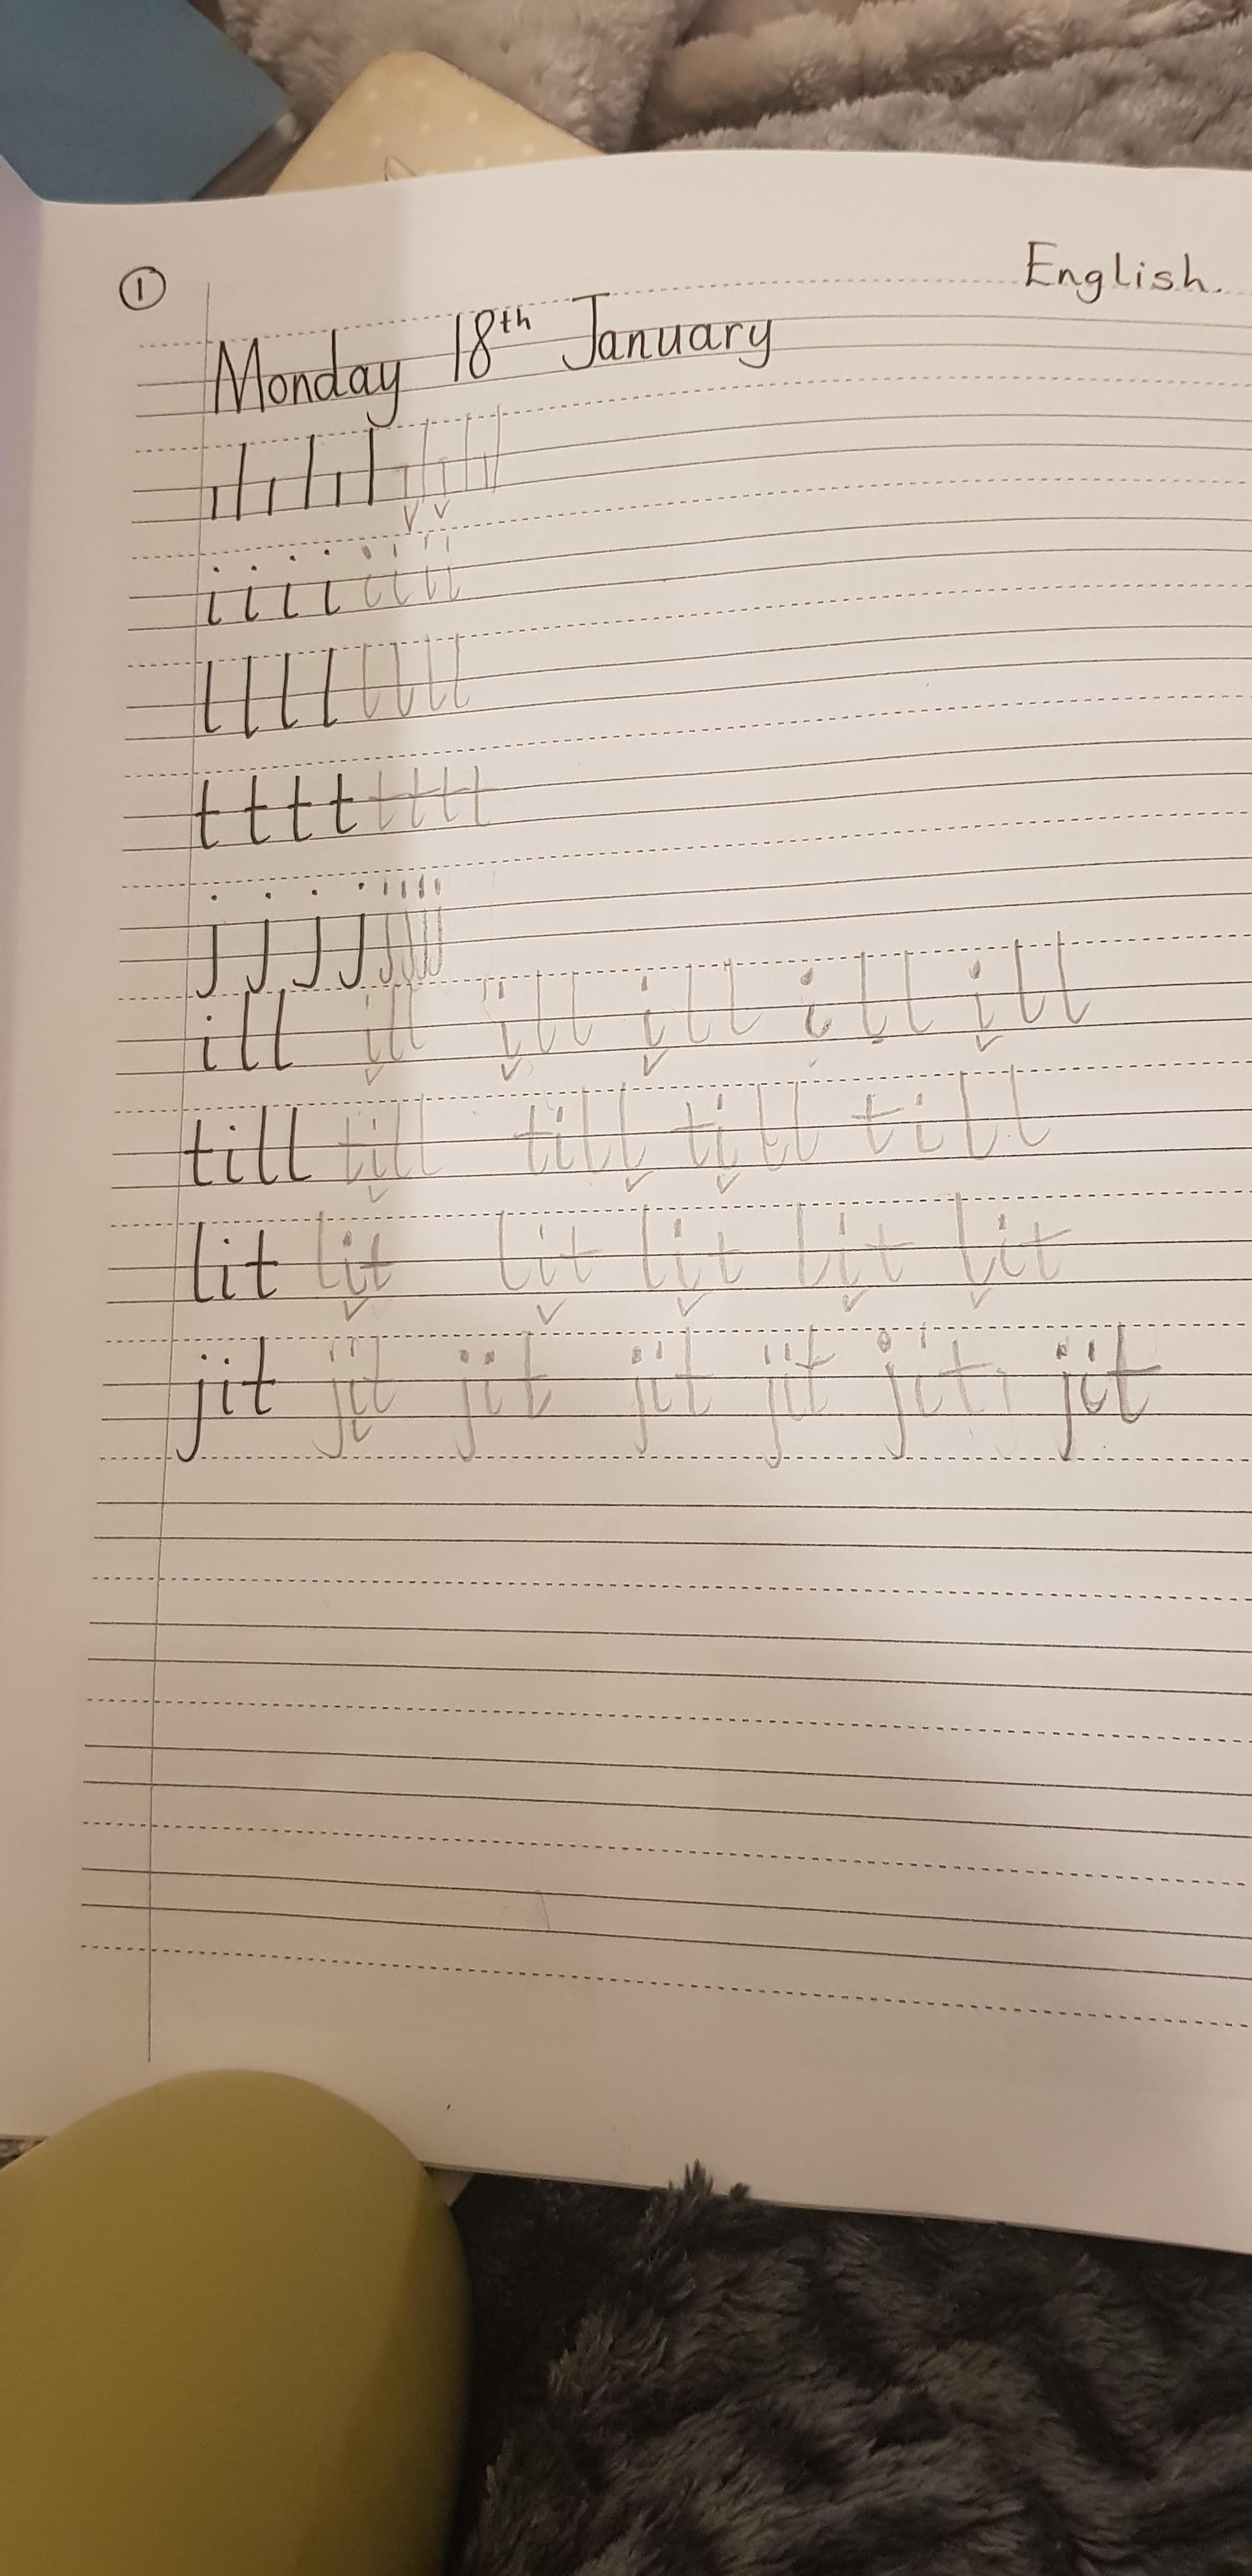 ① English.
Monday 18th January
ı l ı l ı l ı l ı l ı l ı l ı l
i i i i i i i i
l l l l l l l l
t t t t t t t t
j j j j j j j j
ill ill ill ill ill ill
till till till till till
lit lit lit lit lit lit
jit jit jit jit jit jit jit